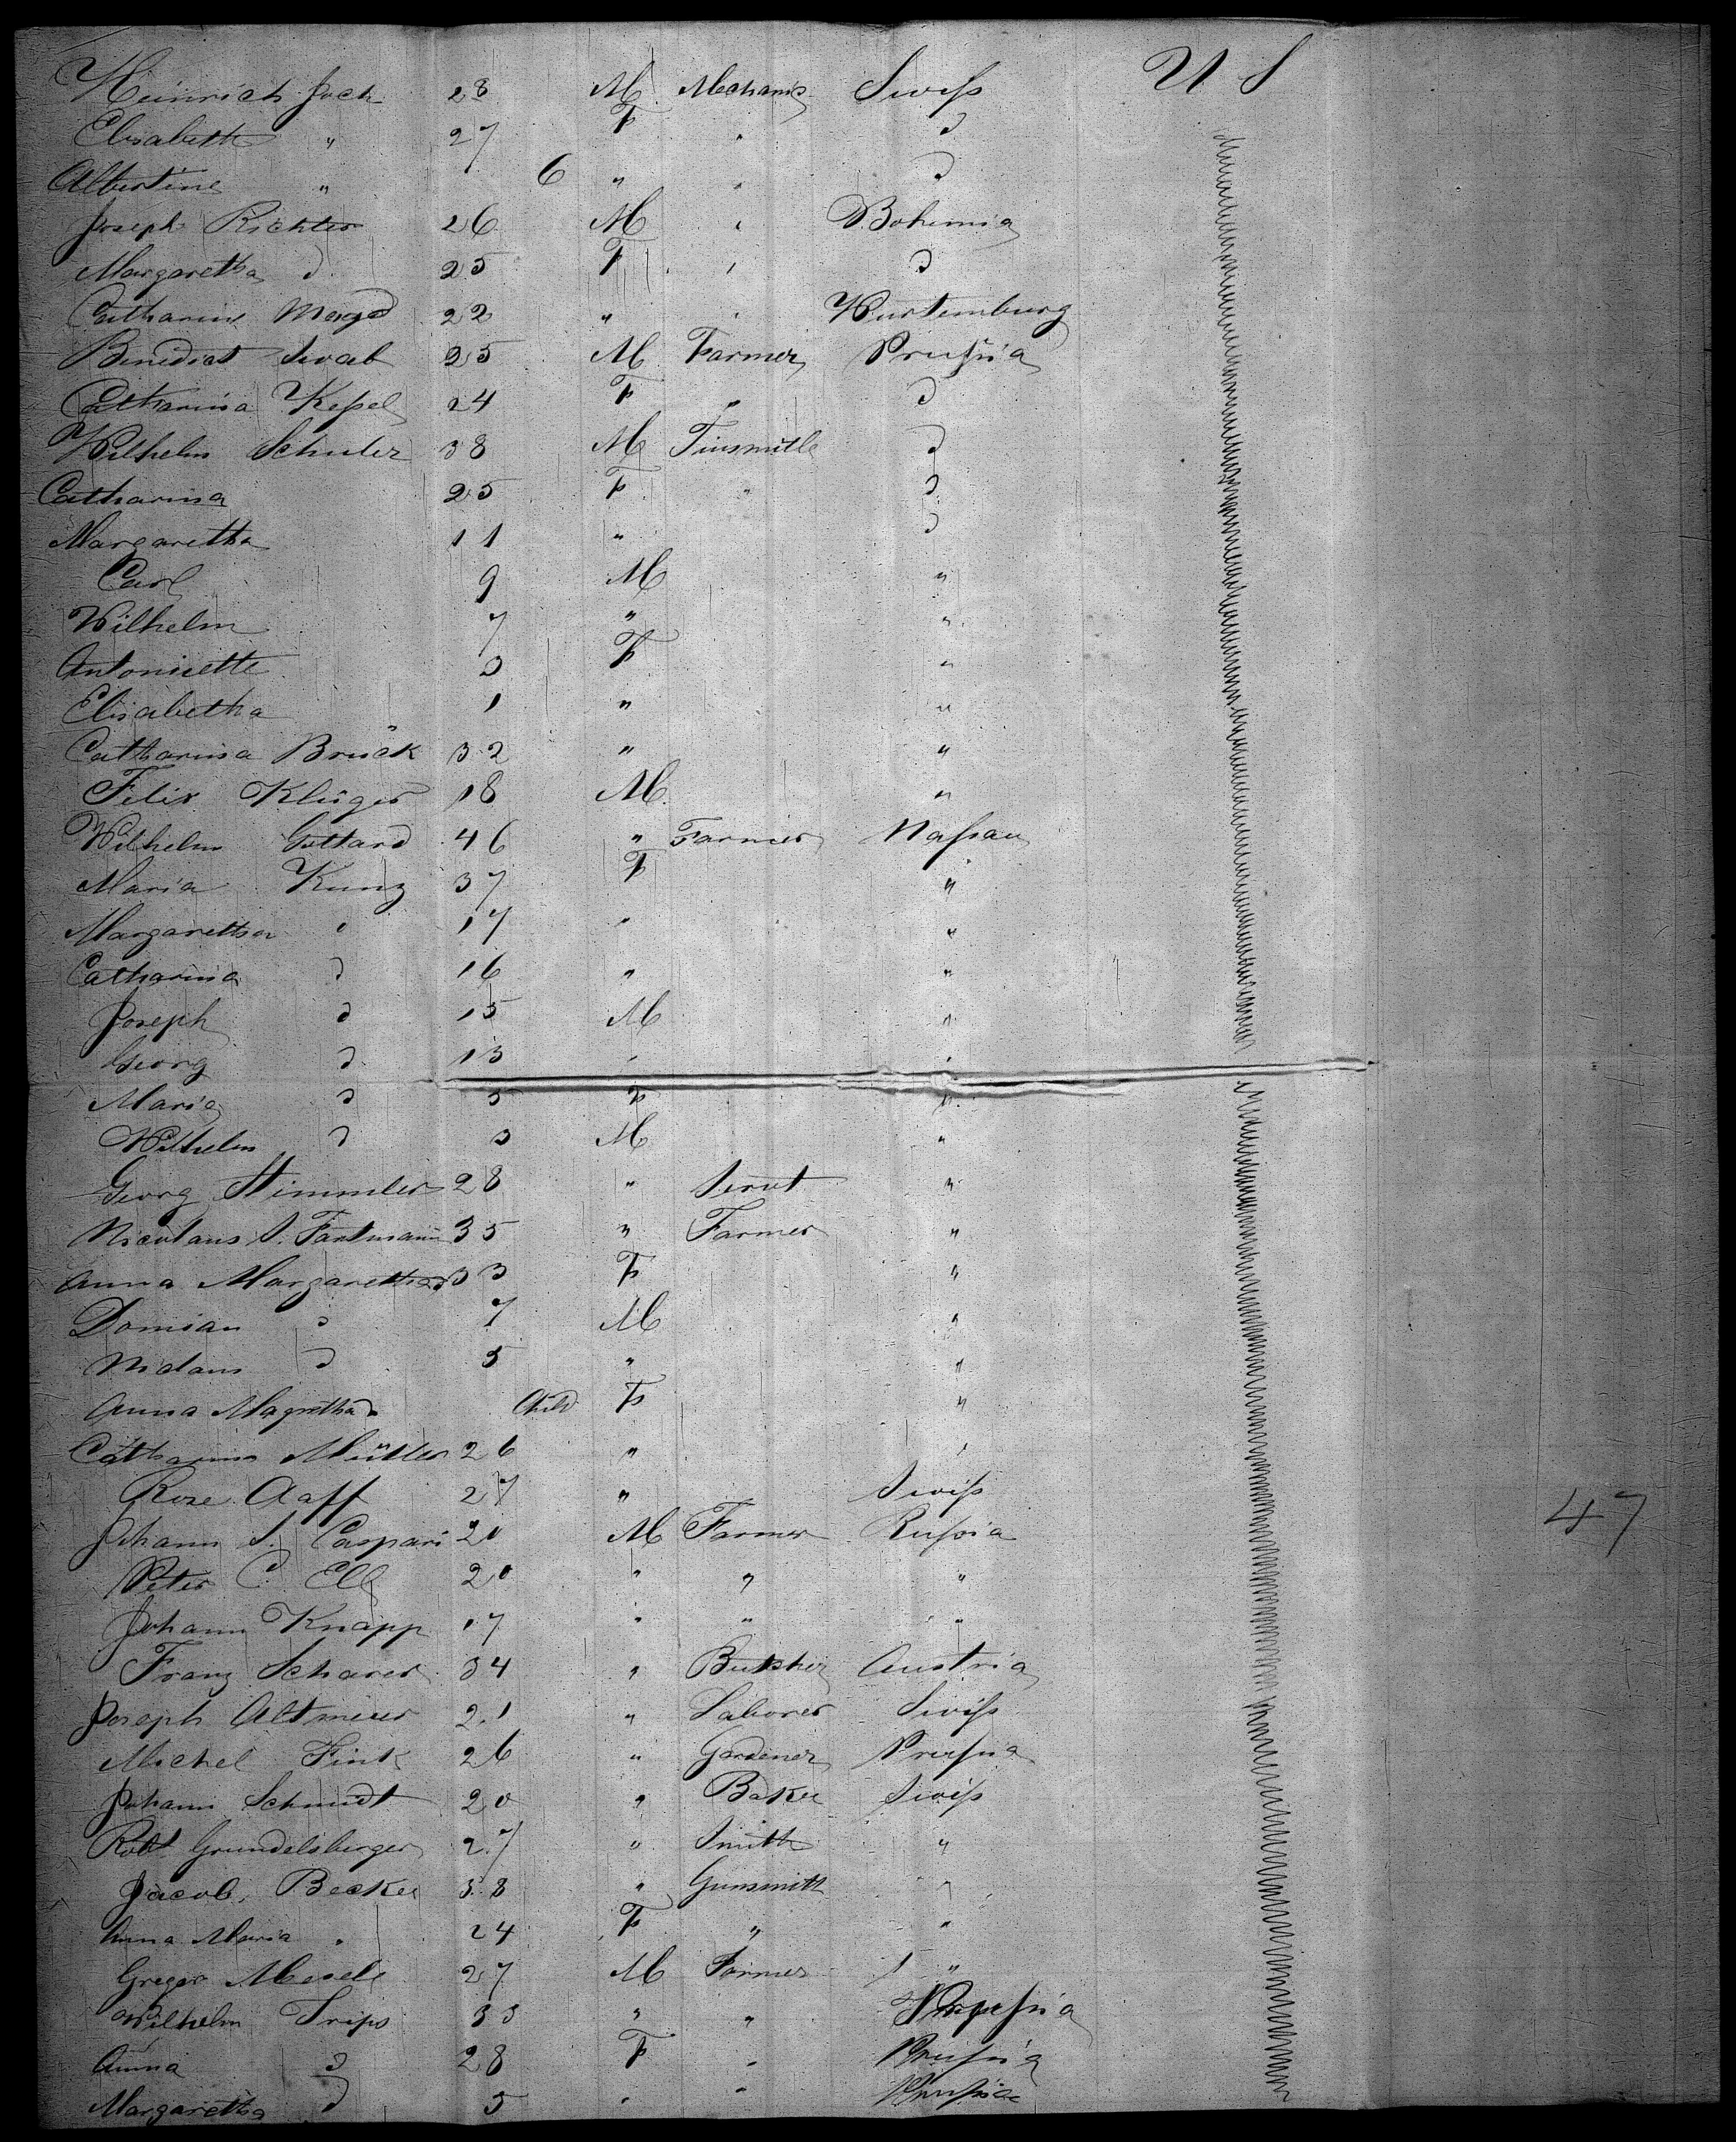 Heinrich Joch 28 M Mechanic Swiss U S
Elisabeth " 27 F " d
Albertine " 6 " " d
Joseph Richter 26 M " Bohemia
Margaretha d 25 F " d
Catharine 22 " " Wurtemburg
Benedict Swab 25 M Farmer Prussia
Catharina Kessel 24 F " d
Wilhelm Schuler 38 M Tinsmith d
Catharina 25 F " d
Margaretha 11 " d
Carl 9 M "
Wilhelm 7 " "
Antoniette 3 F "
Elisabetha 1 " "
Catharina Brück 32 " "
Felix Klüger 18 M "
Wilhelm Gottard 46 " Farmer Nassau
Maria Kunz 37 F "
Margaretha d 17 " "
Catharina d 16 " "
Joseph d 15 M "
Georg d 13 " "
Maria d 5 F "
Wilhelm d 3 M "
Georg Himmler 28 " Servt "
Nicolaus J. 35 " Farmer "
Anna Margaretha d 33 F "
Damian d 7 M "
d 5 " "
Anna Magretha d Child F "
Catharina Müller 26 " "
Rose Aaff 27 " Swiss
Johann J. Caspari 20 M Farmer Russia
Peter C. Ell 20 " " "
Johann Knapp 17 " " "
Franz Scharer 34 " Butcher Austria
Joseph Altmeier 21 " Laborer Swiss
Michel Fink 26 " Gardener Prussia
Johann Schmidt 20 " Baker Swiss
Robt Grundelsberger 27 " Smith "
Jacob Becker 38 " Gunsmith "
Anna Maria " 24 F " "
Gregor 27 M Farmer "
Wilhelm Trips 33 " " Prussia
Anna d 28 F " Prussia
Margaretha d 5 " " Prussia
47